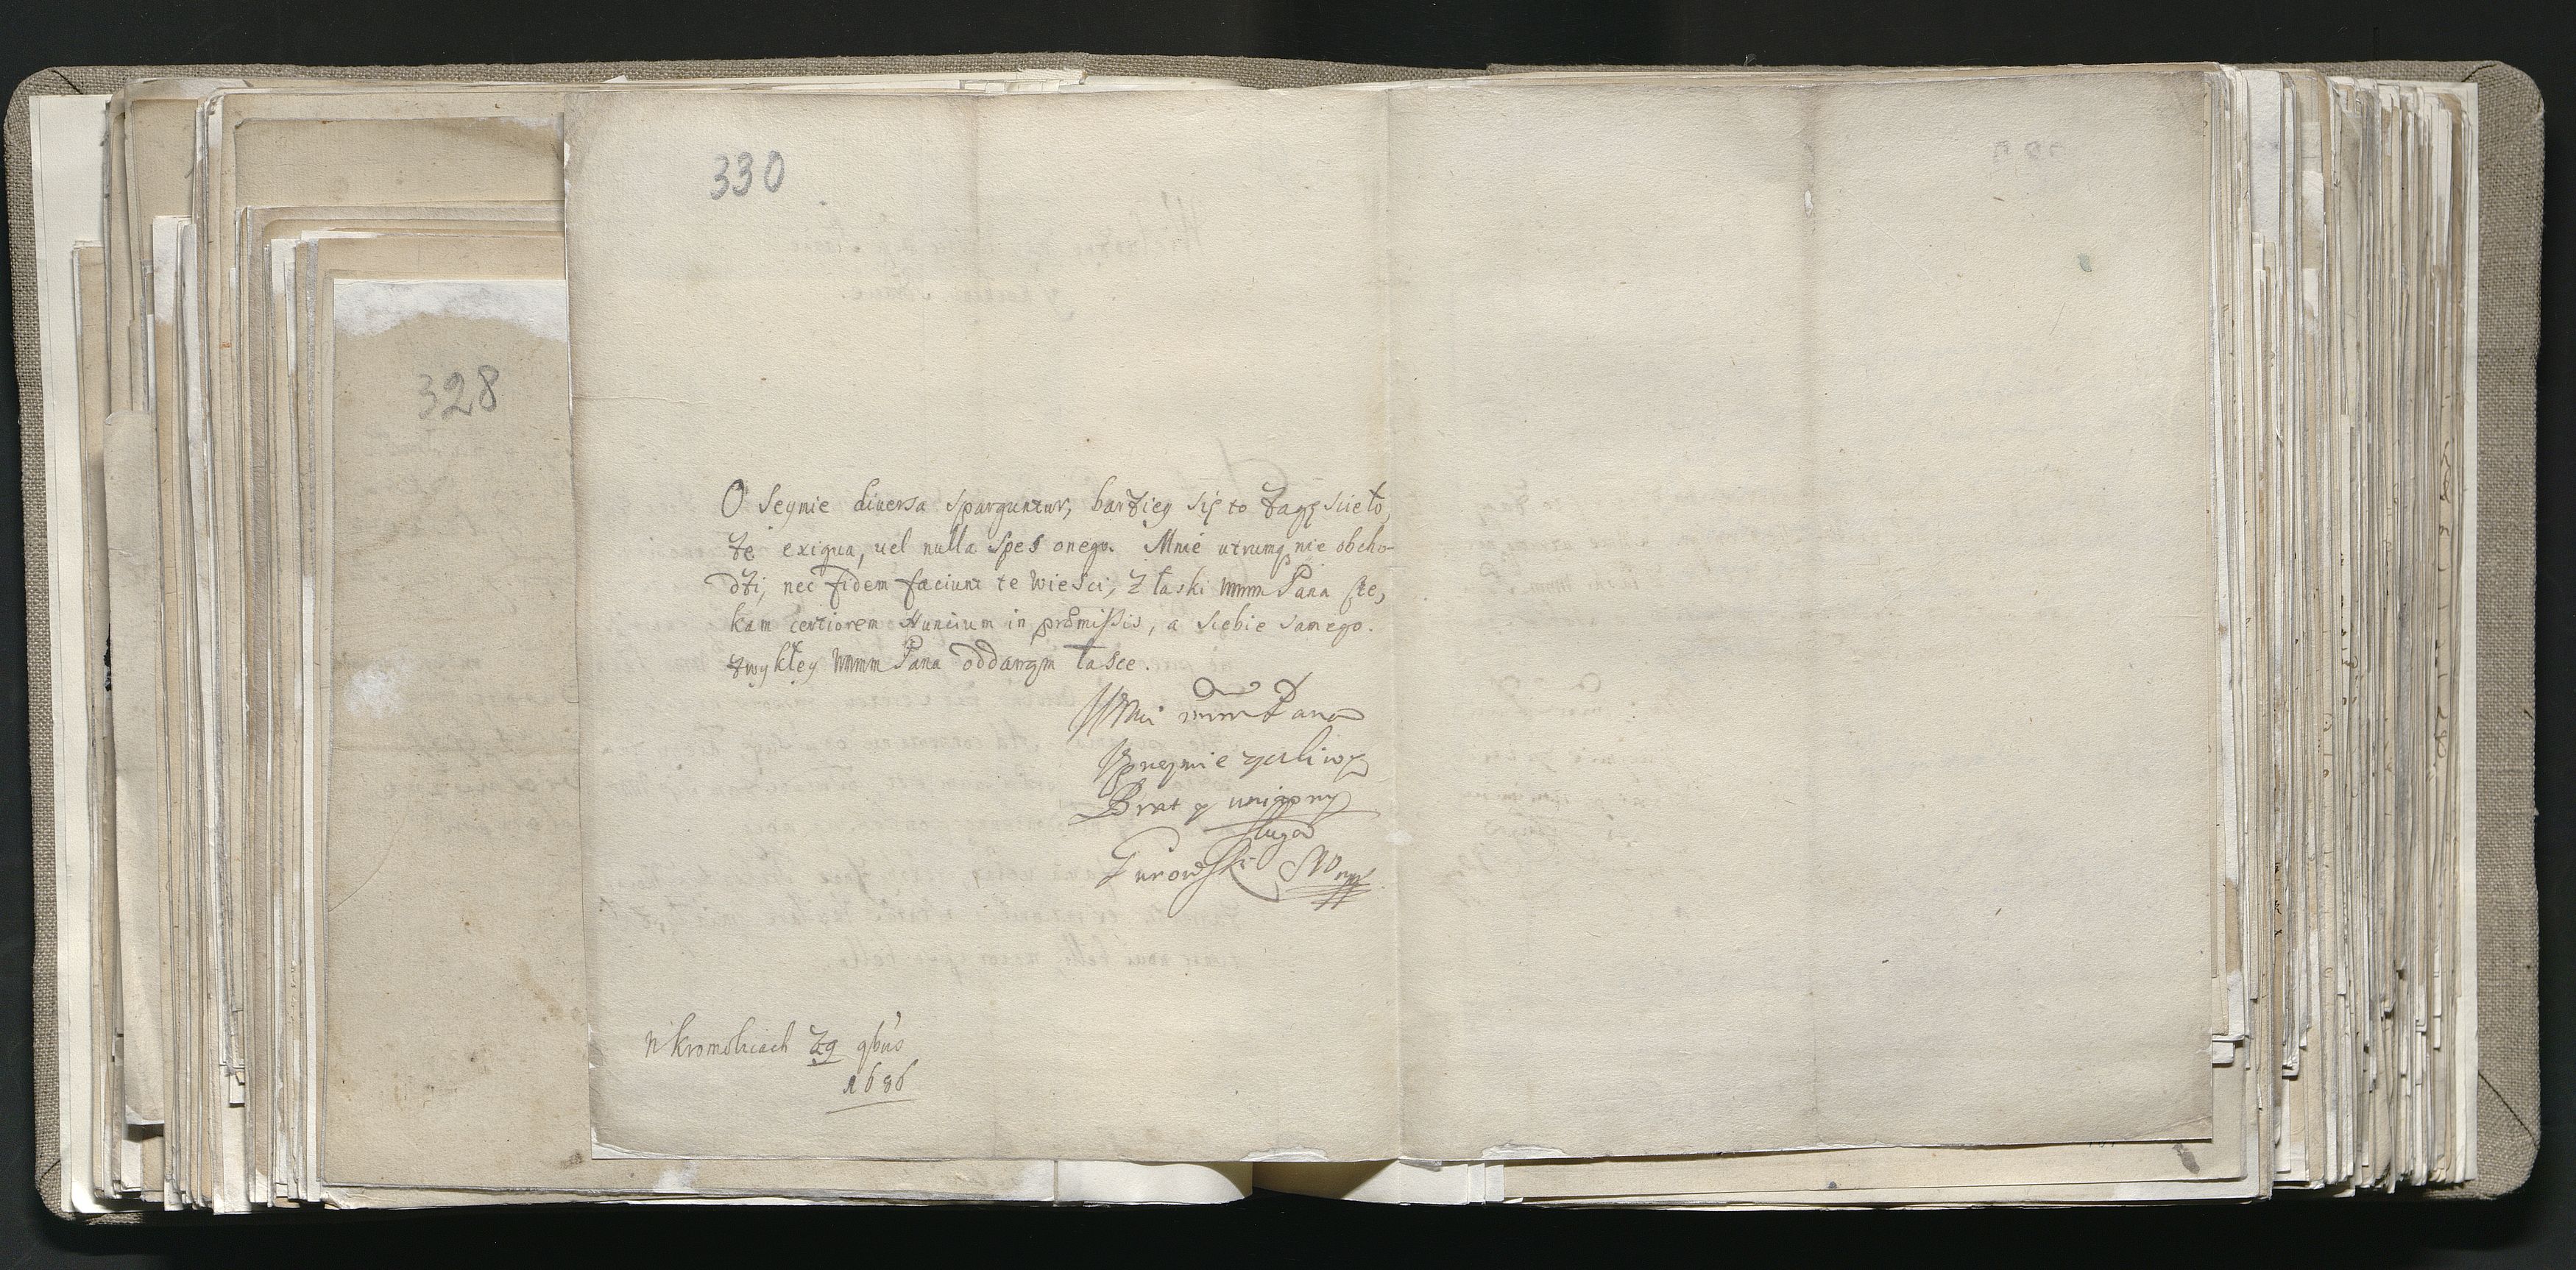 330
328
O Seymie diversa sparguntur, barziey się to zagęscieło,
że exigua, vel nulla spes onego. Mnie utrumq nie obcho-
dzi, nec fidem faciunt te wiesci, z łaski wmm Pana cze,
kam certiorem Nuncium in promissis, a siebie samego.
zwykłey wmm Pana oddawam łasce.
WMci mm Pana
Uprzeymie zyczliwy
Brat y uniżony
sługa
Turowski
w kromolicach 29 qbris
1686